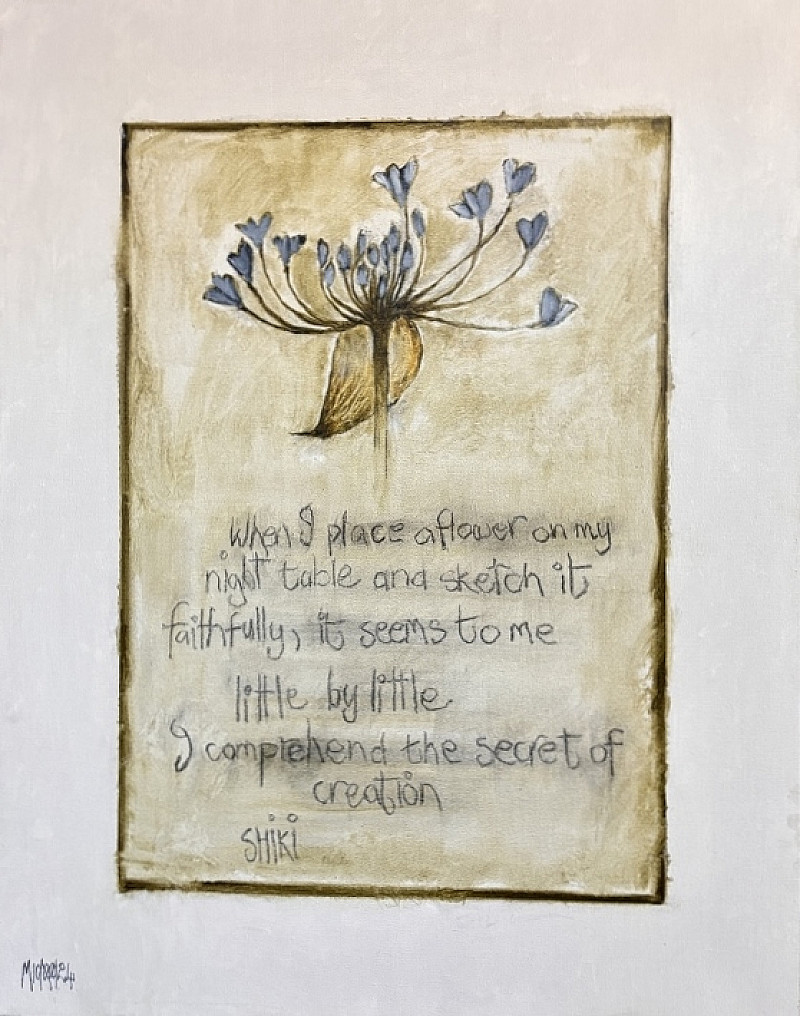 When I place a flower on my
night table and sketch it
faithfully, it seems to me
little by little
I comprehend the secret of
creation
SHiKi